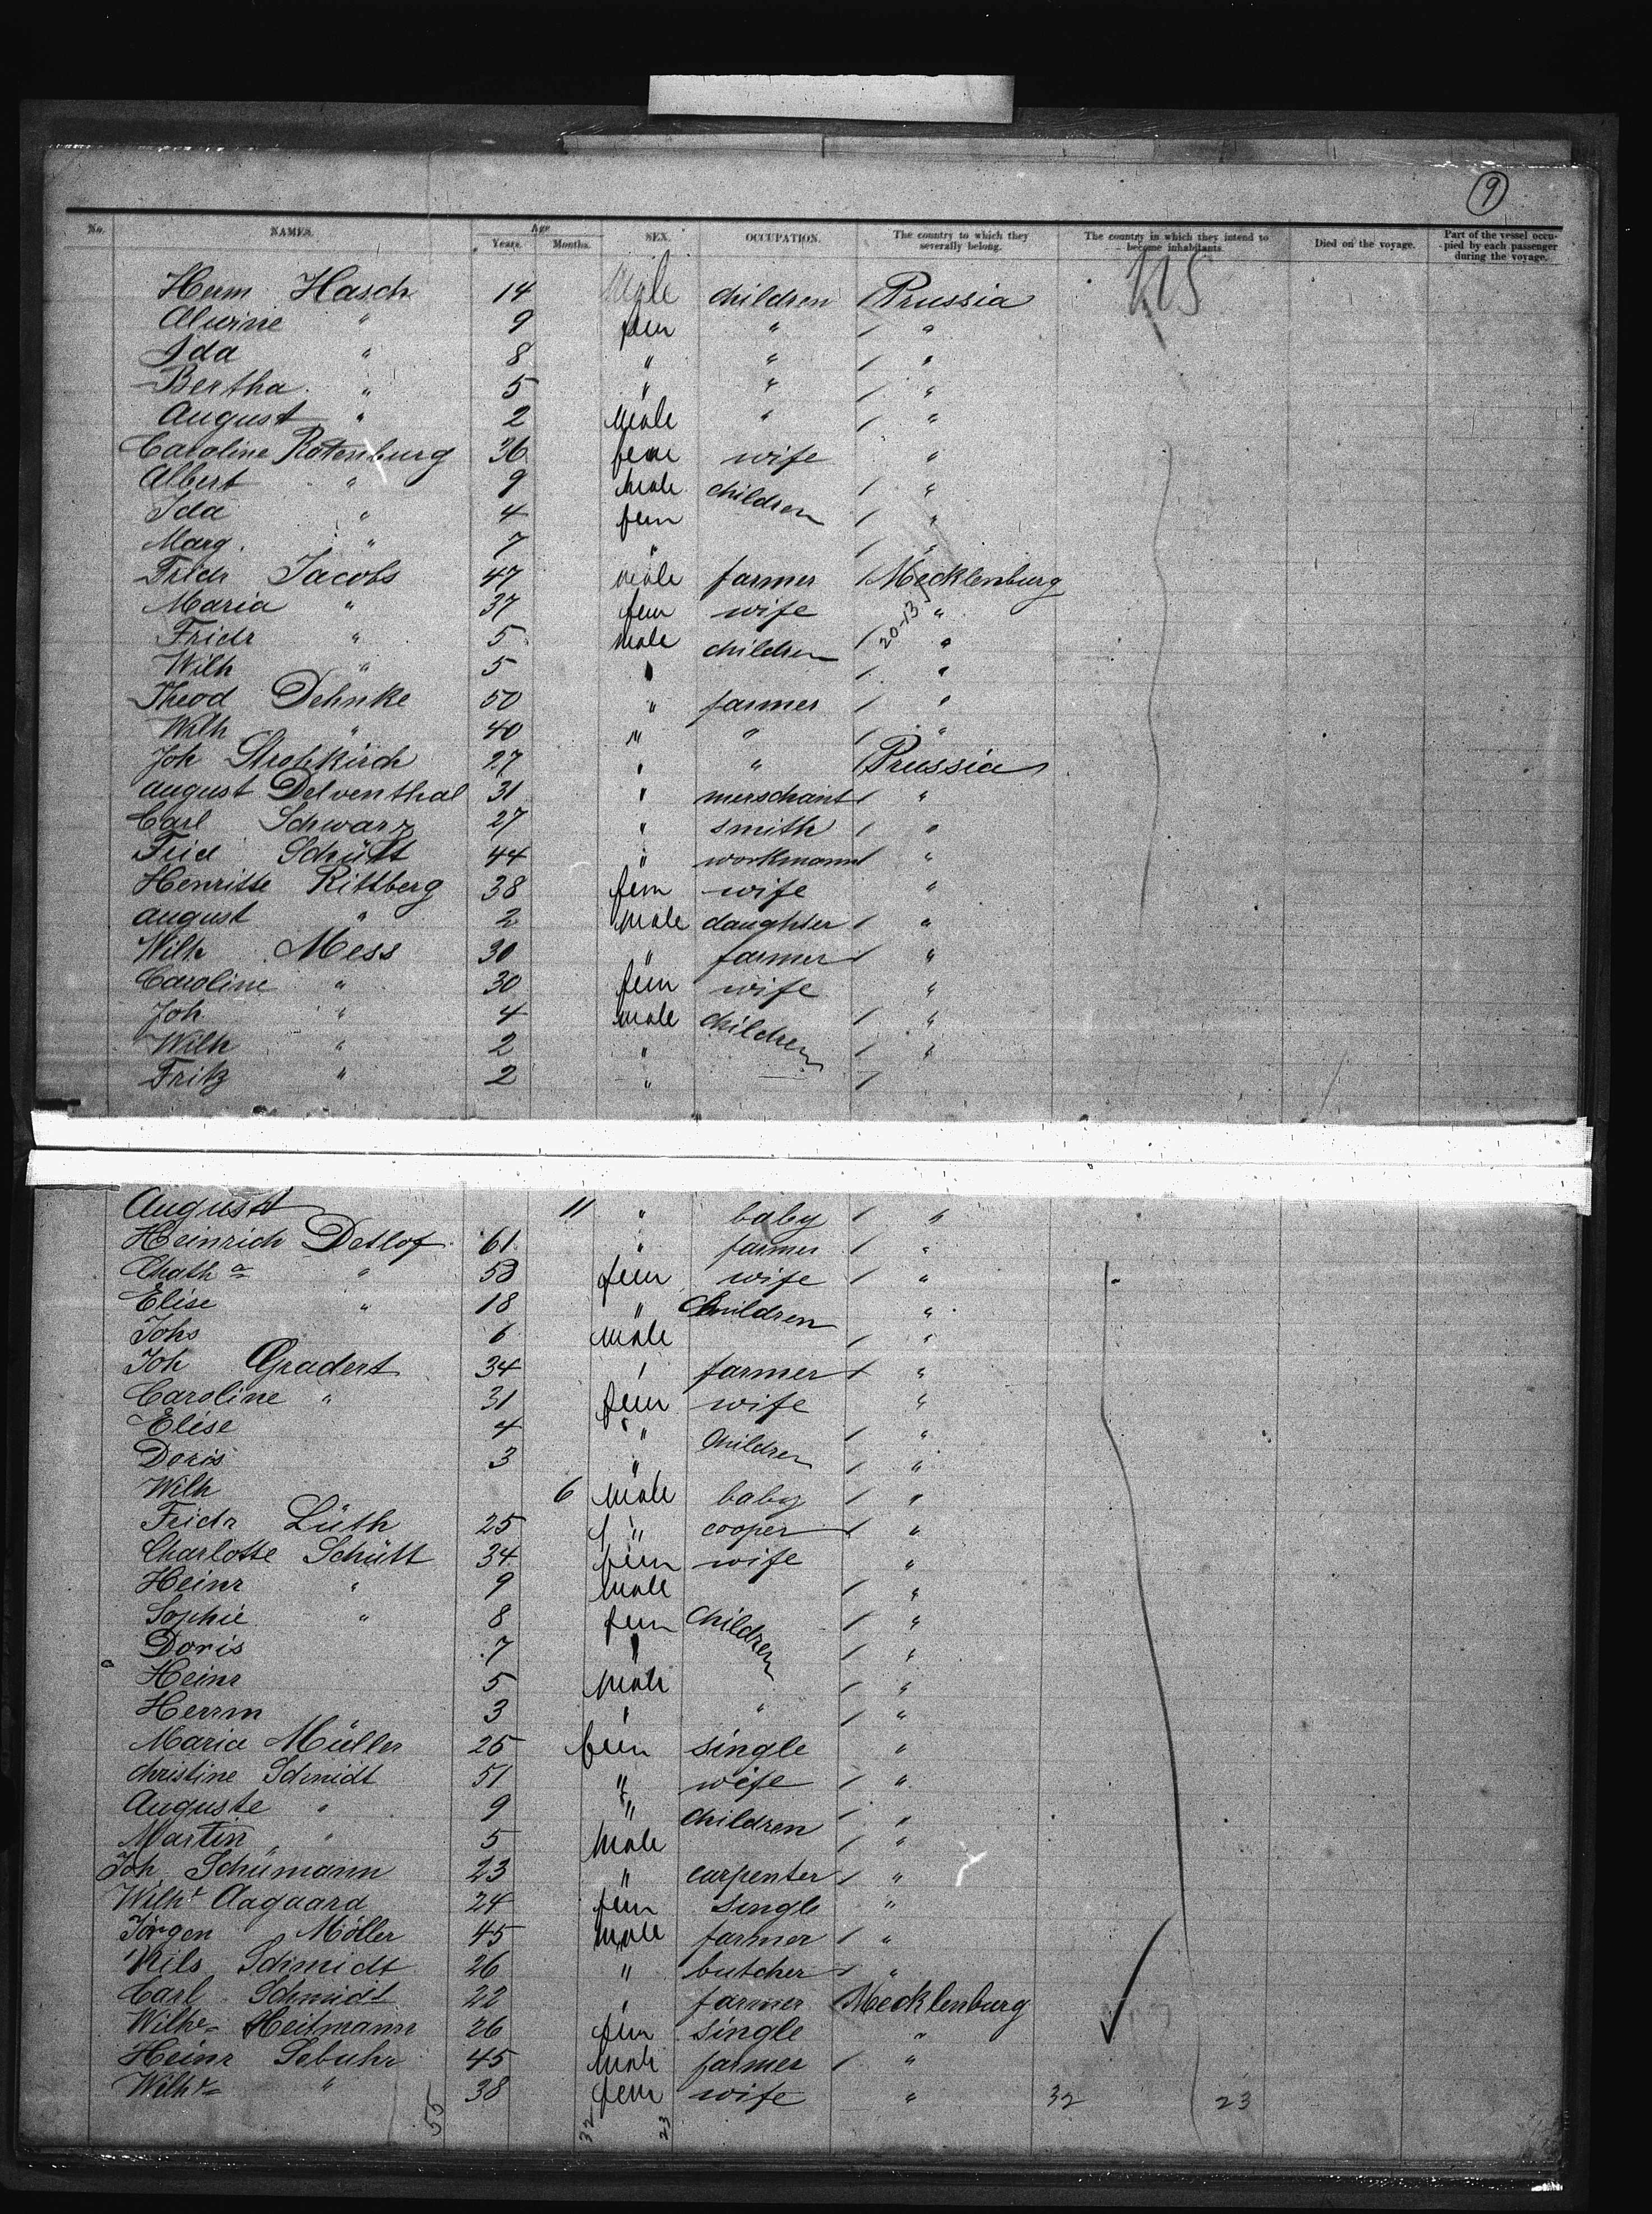 9
No. NAMES. Age Years. Months. SEX. OCCUPATION. The country to which they severally belong. The country in which they intend to become inhabitants. Died on the voyage. Part of the vessel occupied by each passenger during the voyage.
Herm Hasch 14 Male children Prussia U S
Alwine " 9 fem " / "
Ida " 8 " " / "
Bertha " 5 " " / "
August " 2 Male " / "
Caroline Rotenburg 36 fem wife "
Albert " 9 Male children / "
Ida " 4 fem / "
Marg. " 7 " / "
Fridr Jacobs 47 male farmer / Mecklenburg
Maria " 37 fem wife "
Fridr " 5 Male children / 20-13 "
Wilh " 5 " / "
Theod Dehnke 50 " farmer / "
Wilh " 40 " " / "
Joh Strohkirch 27 " " / Prussia
August Delventhal 31 " merschant / "
Carl Schwarz 27 " smith / "
Frid Schütt 44 " workmann / "
Henritte Rittberg 38 fem wife "
august " 2 Male daughter / "
Wilh Mess 30 " farmer / "
Caroline " 30 fem wife "
Joh " 4 male children / "
Wilh " 2 " / "
Fritz " 2 " /
August 11 " baby / "
Heinrich Detlof 61 " farmer / "
Chath a " 58 fem wife / "
Elise " 18 " Children "
Johs 6 Male / "
Joh Gradert 34 " farmer / "
Caroline " 31 fem wife "
Elise 4 " Children / "
Doris 3 " / "
Wilh 6 Male baby / "
Fridr Lüth 25 " cooper / "
Charlotte Schütt 34 fem wife "
Heinr " 9 Male / "
Sophie " 8 fem Children / "
Doris 7 " / "
Heinr 5 Male / "
Herrm 3 " " / "
Maria Müller 25 fem single "
Christine Schmidt 51 " wife / "
Auguste " 9 " Children / "
Martin " 5 Male / "
Joh Schümann 23 " carpenter / "
Wilhe Aagaard 24 fem single "
Jörgen Möller 45 Male farmer / "
Nils Schmidt 26 " butcher / "
Carl Schmidt 22 " farmer / Mecklenburg
Wilhe Heitmann 26 fem single "
Heinr Sebuhr 45 Male farmer / "
Wilhe " 38 fem wife " 32 23
55 32 23